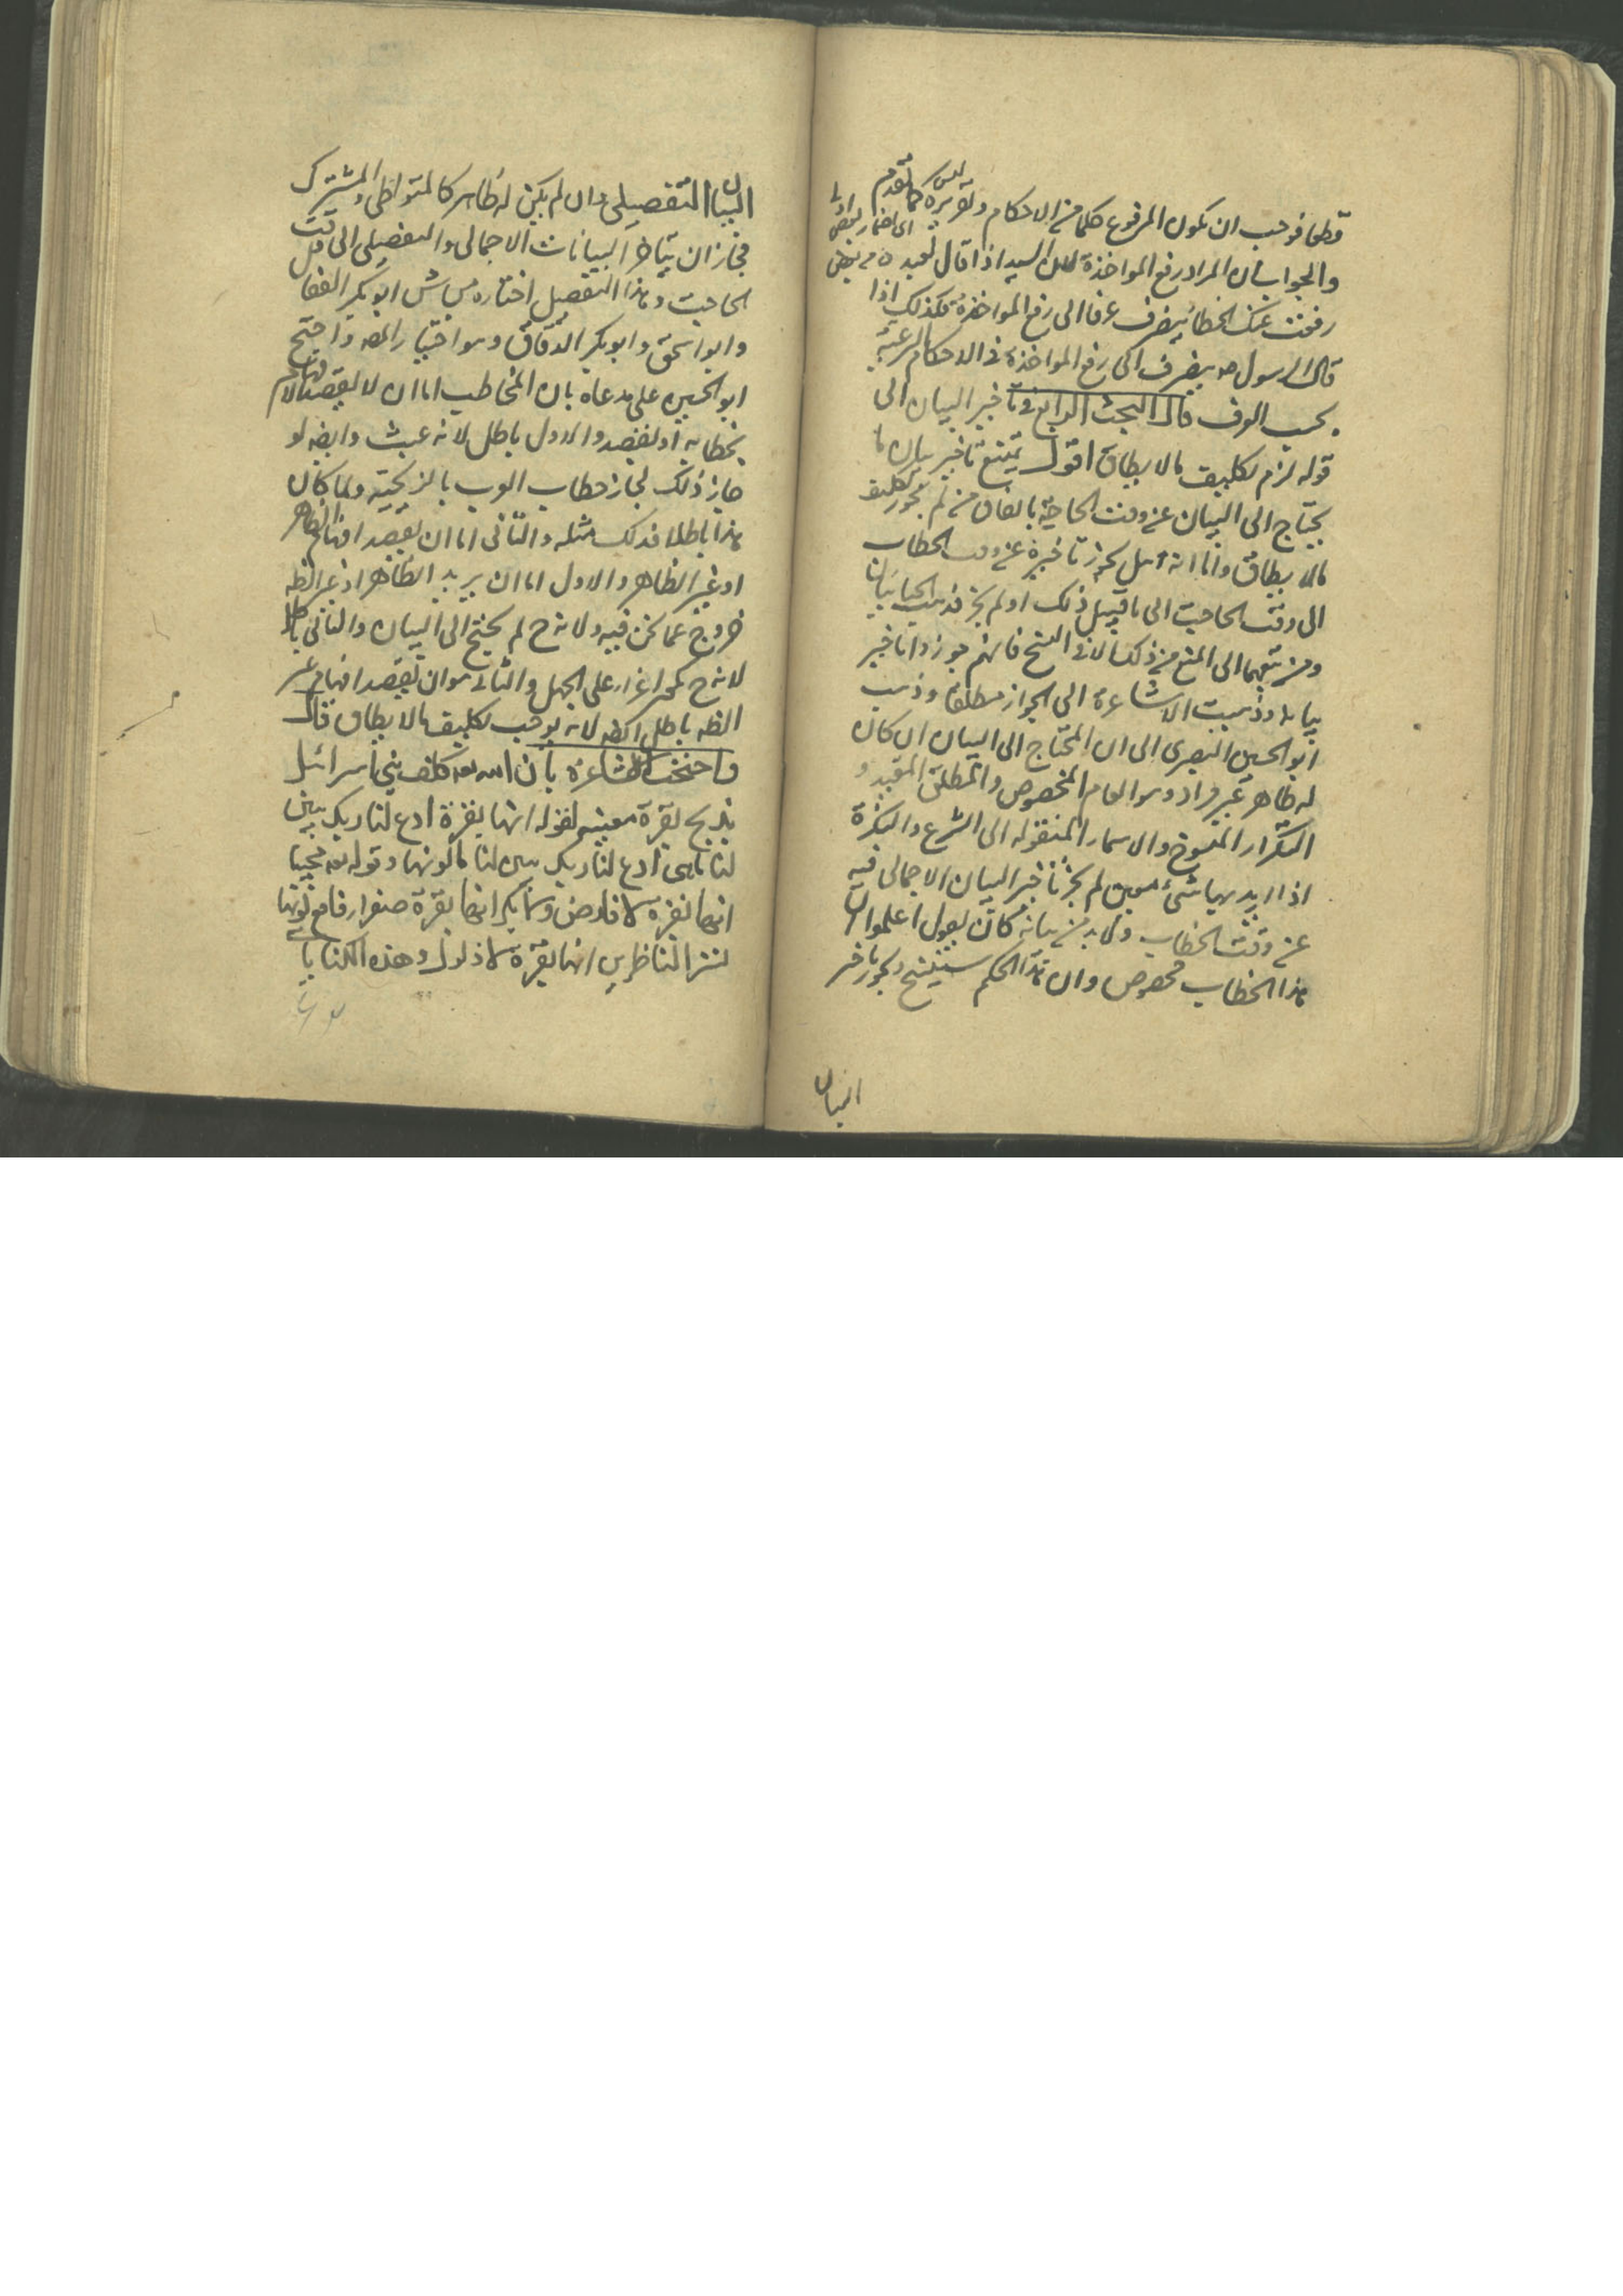 قطعا فوجب ان يكون المرفوع حكما من الاحكام وتقريره كما تقدم
والجواب بان المراد رفع المواخذة لان السيد اذا قال لعبده
رفعت عنك الخطا ينصرف عرفا الى رفع المواخذة فكذلك اذا
قال الرسول صه ينصرف الى رفع المواخذة في الاحكام الشرعية
بحسب العرف قال البحث الرابع في تاخير البيان الى
قوله لزم تكليف مالا يطاق اقول يمتنع تاخير بيان ما
يحتاج الى البيان عن وقت الحاجة بالاتفاق من لم يجوز تكليف
مالا يطاق واما انه هل يجوز تاخيره عن وقت الخطاب
الى وقت الحاجة الى ما قبيل ذلك او لم يجز فذهب الجبائيان
ومن تبعهما الى المنع من ذلك الا في النسخ فانهم جوزوا تاخير
بيانه وذهبت الاشاعرة الى الجواز مطلقا وذهب
ابو الحسين البصرى الى ان المحتاج الى البيان ان كان
له ظاهر غير مراد وهو العام المخصوص والمطلق المقيد و
التكرار المنسوخ والاسماء المنقوله الى الشرع والنكرة
اذا اريد بها شئ معين لم يجز تاخير البيان الاجمالى فيه
عن وقت الخطاب ولابد من بيانه كان يقول اعلموا ان
هذا الخطاب مخصوص وان هذا الحكم سينسخ ويجوز تاخير
البيان
البيان التفصيلى وان لم يكن له ظاهر كالمتواطى والمشترك
فجاز ان يتاخر البيانات الاجمالى والتفصيلى الى وقت
الحاجت وهذا التفصيل اختاره ابو بكر القفال
وابو اسحق وابو بكر الدقاق وهو اختيار المصه واحتج
ابو الحسين على مدعاه بان المخاطب اما ان لا يقصد الافهام
بخطابه او يقصد والاول باطل لانه عبث وايضه لو
جاز ذلك لجاز خطاب العرب بالزنجية ولما كان
هذا باطلا فذلك مثله والثانى اما ان يقصد افهام الظاهر
او غير الظاهر والاول اما ان يريد الظاهر اذ غير الظه
خروج عما نحن فيه ولانه ح لم يحتج الى البيان والثانى باطل
لانه ح يكون اغراء على الجهل والثانى هو ان يقصد افهام غير
الظه باطل ايضه لانه يوجب تكليف مالا يطاق قال
واحتجت الاشاعرة بان الله تعه كلف بنى اسرائيل
بذبح بقرة معينه لقوله انها بقرة ادع لنا ربك يبين
لنا ما هى ادع لنا ربك يبين لنا ما لونها وقوله تعه مجيبا
انها بقرة لا فارض ولا بكر انها بقرة صفراء فاقع لونها
تسر الناظرين انها بقرة لا ذلول وهذه الكنايا